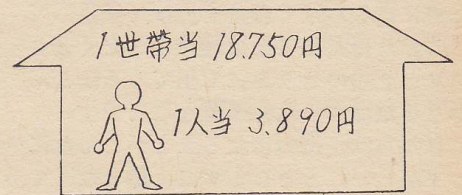 1世帯当 18.750円
1人当 3.890円